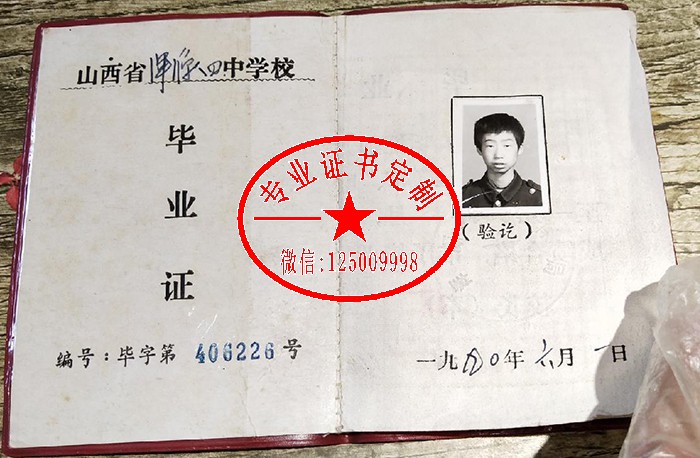 山西省浑源四中学校
毕
业
证
编号：毕字第 406226 号
(验讫)
一九九〇年六月一日
专业证书定制
微信:125009998